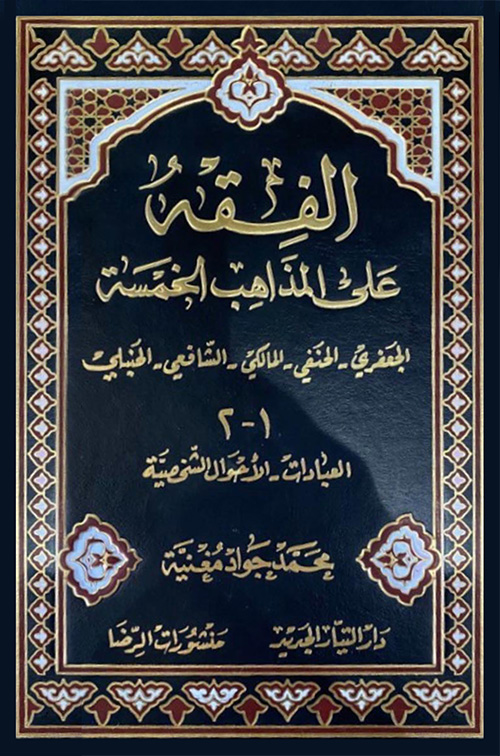 الفِقه
عَلى المذَاهِب الخمسَة
الجعفري - الحنفي - المالكي - الشافعي - الحنبلي
١ - ٢
العبادات - الأحوال الشخصية
محمّد جَواد مُغنيّة
دَار التيار الجديد    منشورات الرضا